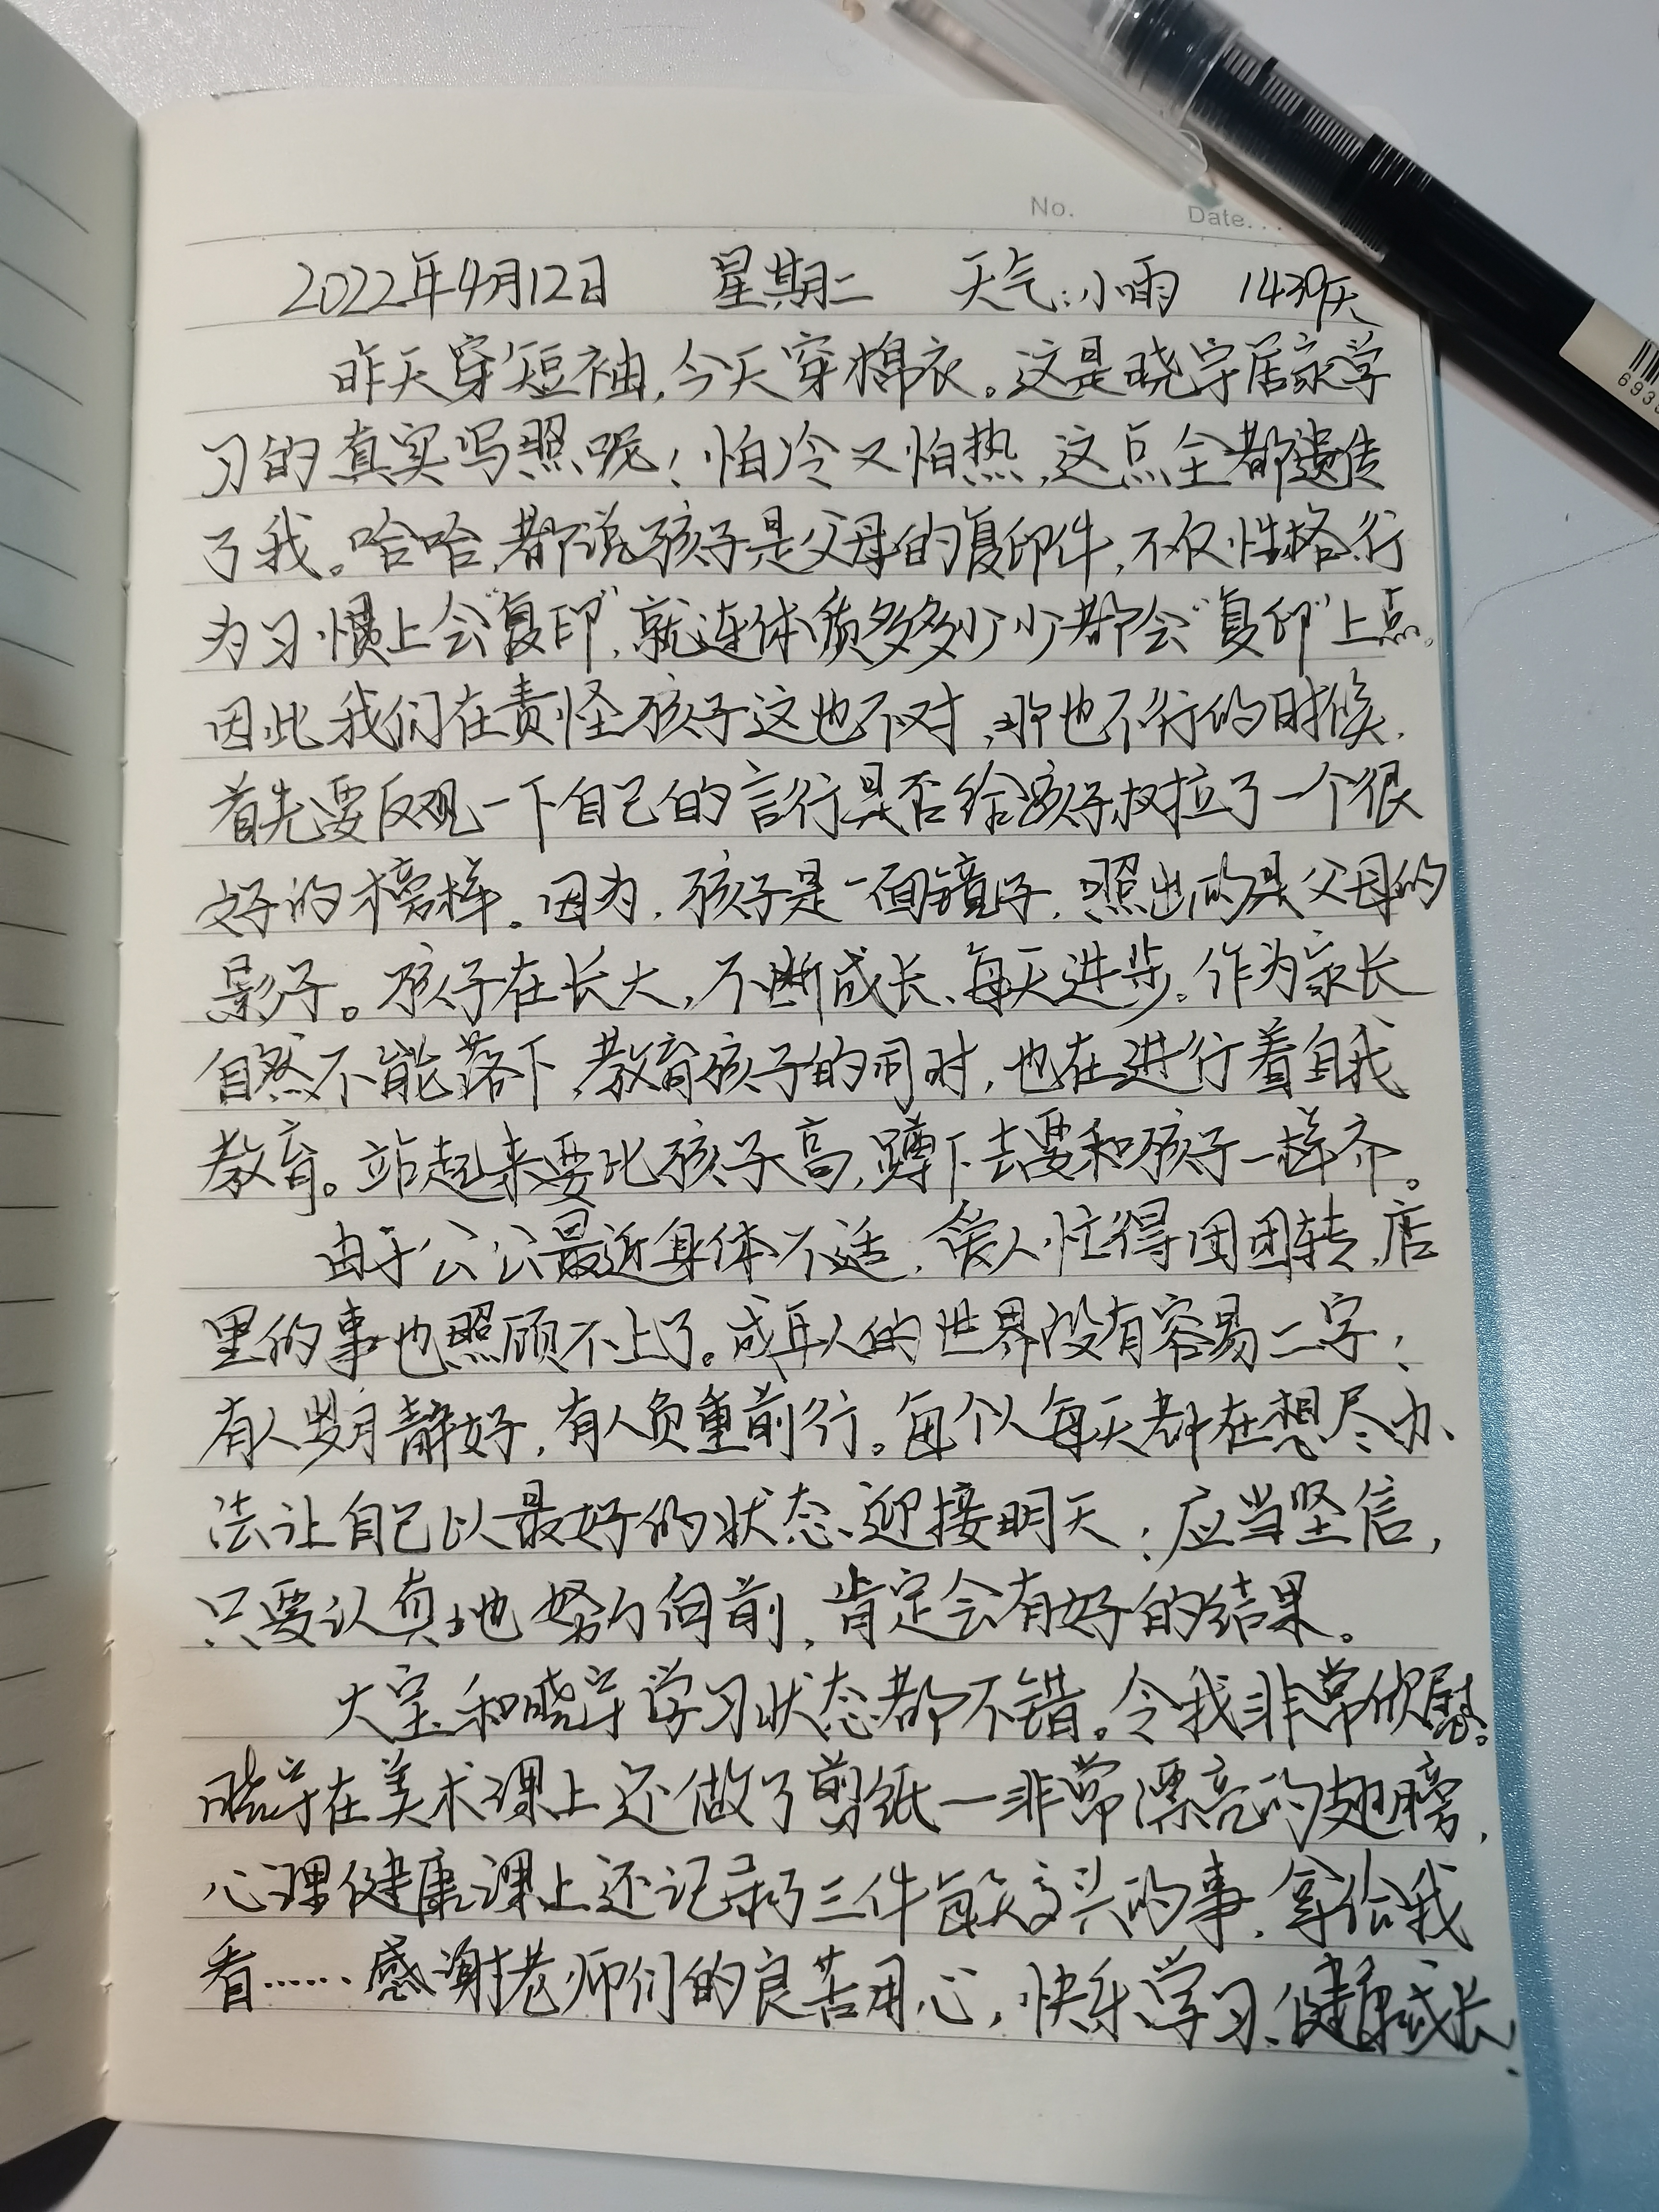 No.
Date...
2022年4月12日 星期二 天气:小雨 1439天
昨天穿短袖,今天穿棉衣。这是晓宇居家学
习的真实写照呢!怕冷又怕热,这点全都遗传
了我。哈哈,都说孩子是父母的复印件,不仅性格行
为习惯上会“复印”,就连体质多多少少都会“复印”上点。
因此我们在责怪孩子这也不对,那也不行的时候,
首先要反观一下自己的言行是否给孩子树立了一个很
好的榜样。因为,孩子是一面镜子,照出的是父母的
影子。孩子在长大,不断成长、每天进步。作为家长
自然不能落下,教育孩子的同时,也在进行着自我
教育。站起来要比孩子高,蹲下去要和孩子一样齐。
由于公公最近身体不适,爱人忙得团团转,店
里的事也照顾不上了。成年人的世界没有容易二字;
有人岁月静好,有人负重前行。每个人每天都在想尽办
法让自己以最好的状态迎接明天;应当坚信,
只要认真地努力向前,肯定会有好的结果。
大宝和晓宇学习状态都不错。令我非常欣慰。
晓宇在美术课上还做了剪纸一非常漂亮的翅膀,
心理健康课上还记录了三件每天高兴的事,拿给我
看……感谢老师们的良苦用心,快乐学习、健康成长!
693